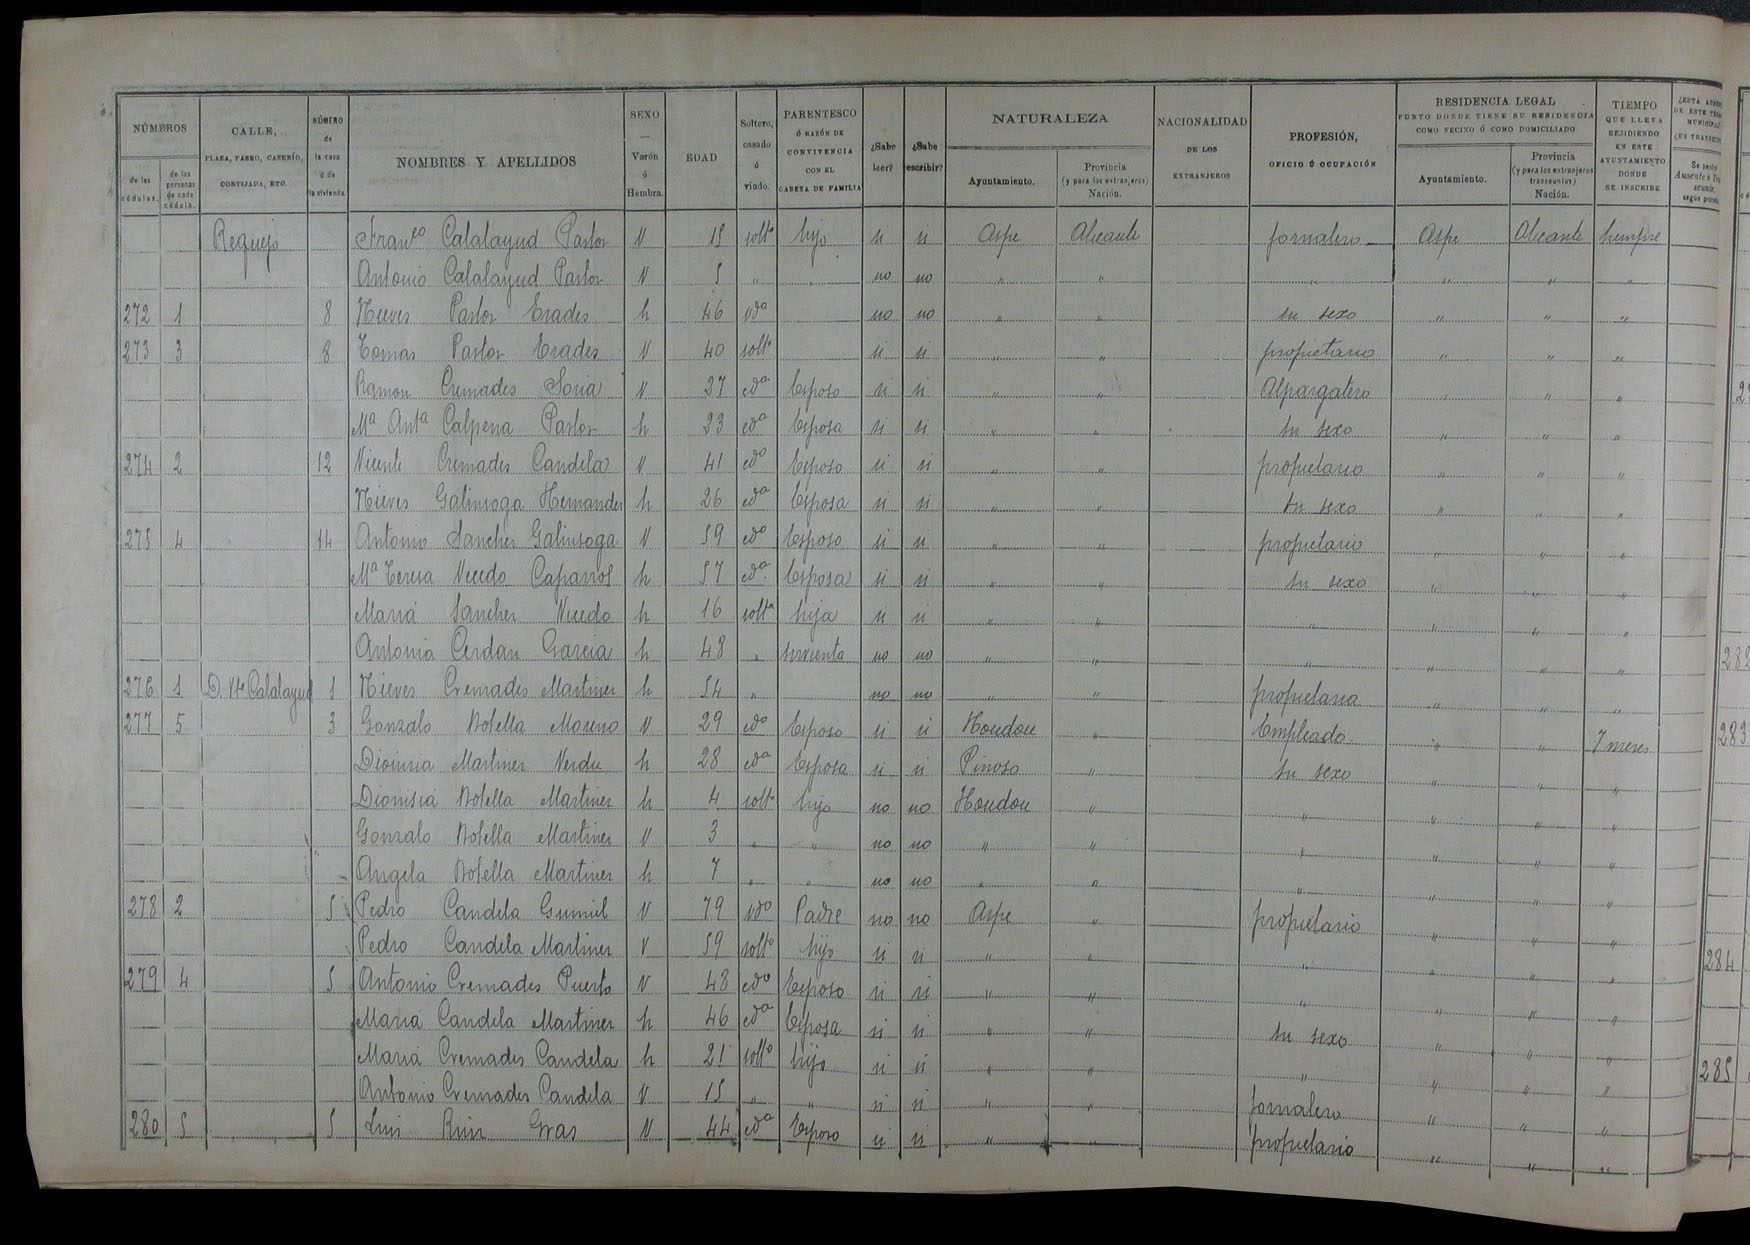 NÚMEROS
de las cédulas.
de las personas de cada cédula.
CALLE, PLAZA, PASEO, CASERÍO, CORTIJADA, ETC.
NÚMERO de la casa ó de la vivienda.
NOMBRES Y APELLIDOS
SEXO — Varón ó Hembra.
EDAD
Soltero, casado ó viudo.
PARENTESCO Ó RAZÓN DE CONVIVENCIA CON EL CABEZA DE FAMILIA
¿Sabe leer?
¿Sabe escribir?
NATURALEZA
Ayuntamiento.
Provincia (y para los extranjeros) Nación.
NACIONALIDAD DE LOS EXTRANJEROS
PROFESIÓN, OFICIO Ó OCUPACIÓN
RESIDENCIA LEGAL
PUNTO DONDE TIENE SU RESIDENCIA COMO VECINO Ó COMO DOMICILIADO
Ayuntamiento.
Provincia (y para los extranjeros transeuntes) Nación.
TIEMPO QUE LLEVA RESIDIENDO EN ESTE AYUNTAMIENTO DONDE SE INSCRIBE
Requejo Franco Calatayud Pastor V 15 solto hijo si si Aspe Alicante jornalero Aspe Alicante siempre
Antonio Calatayud Pastor V 5 " " no no " " " " " "
272 1 8 Nieves Pastor Erades h 46 vda no no " " su sexo " " "
273 3 8 Tomas Pastor Erades V 40 solto si si " " propietario " " "
Ramon Cremades Soria V 27 cdo Esposo si si " " Alpargatero " " "
Ma Anta Calpena Pastor h 23 cda Esposa si si " " su sexo " " "
274 2 12 Vicente Cremades Candela V 41 cdo Esposo si si " " propietario " " "
Nieves Galinsoga Hernandez h 26 cda Esposa si si " " su sexo " " "
275 4 14 Antonio Sanchez Galinsoga V 59 cdo Esposo si si " " propietario " " "
Ma Teresa Vicedo Caparros h 57 cda Esposa si si " " su sexo " " "
Maria Sanchez Vicedo h 16 solta hija si si " " " " " "
Antonia Cerdan Garcia h 48 " sirvienta no no " " " " " "
276 1 D. Vte Calatayud 1 Nieves Cremades Martinez h 54 " no no " " propietaria " " "
277 5 3 Gonzalo Botella Moreno V 29 cdo Esposo si si Hondon " Empleado " " 7 meses
Dionisia Martinez Verdu h 28 cda Esposa si si Pinoso " su sexo " " "
Dionisia Botella Martinez h 4 solto hijo no no Hondon " " " " "
Gonzalo Botella Martinez V 3 " " no no " " " " " "
Angela Botella Martinez h 7 " " no no " " " " " "
278 2 5 Pedro Candela Gumiel V 79 vdo Padre no no Aspe " propietario " " "
Pedro Candela Martinez V 59 solto hijo si si " " " " " "
279 4 5 Antonio Cremades Puerto V 48 cdo Esposo si si " " " " " "
Maria Candela Martinez h 46 cda Esposa si si " " su sexo " " "
Maria Cremades Candela h 21 solto hijo si si " " " " " "
Antonio Cremades Candela V 15 " " si si " " jornalero " " "
280 5 5 Luis Ruiz Gras V 44 cdo Esposo si si " " propietario " " "
282
283
284
285